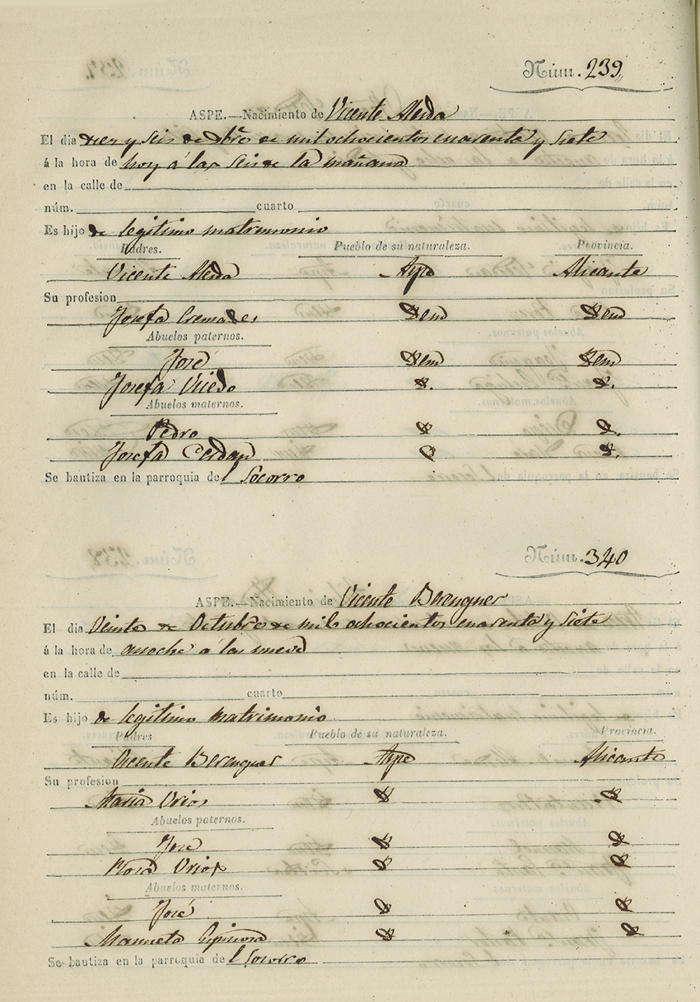 Núm. 239
ASPE.—Nacimiento de Vicente Alcda
El dia diez y seis de Obre de mil ochocientos cuarenta y siete
á la hora de hoy á las seis de la mañana
en la calle de
núm. cuarto
Es hijo de legitimo matrimonio
Padres. Pueblo de su naturaleza. Provincia.
Vicente Alcda Aspe Alicante
Su profesion
Josefa Cremades Idem Idem
Abuelos paternos.
José Idem Idem
Josefa
Abuelos maternos.
Pedro
Josefa Cerdan
Se bautiza en la parroquia del Socorro
Núm. 340
ASPE.—Nacimiento de Vicente Berenguer
El dia Veinte de Octubre de mil ochocientos cuarenta y siete
á la hora de anoche a las nueve
en la calle de
núm. cuarto
Es hijo de legitimo matrimonio
Padres Pueblo de su naturaleza. Provincia.
Vicente Berenguer Aspe Alicante
Su profesion
Maria Urios
Abuelos paternos.
José
Rosa Urios
Abuelos maternos.
José
Manuela Espinosa
Se bautiza en la parroquia del Socorro